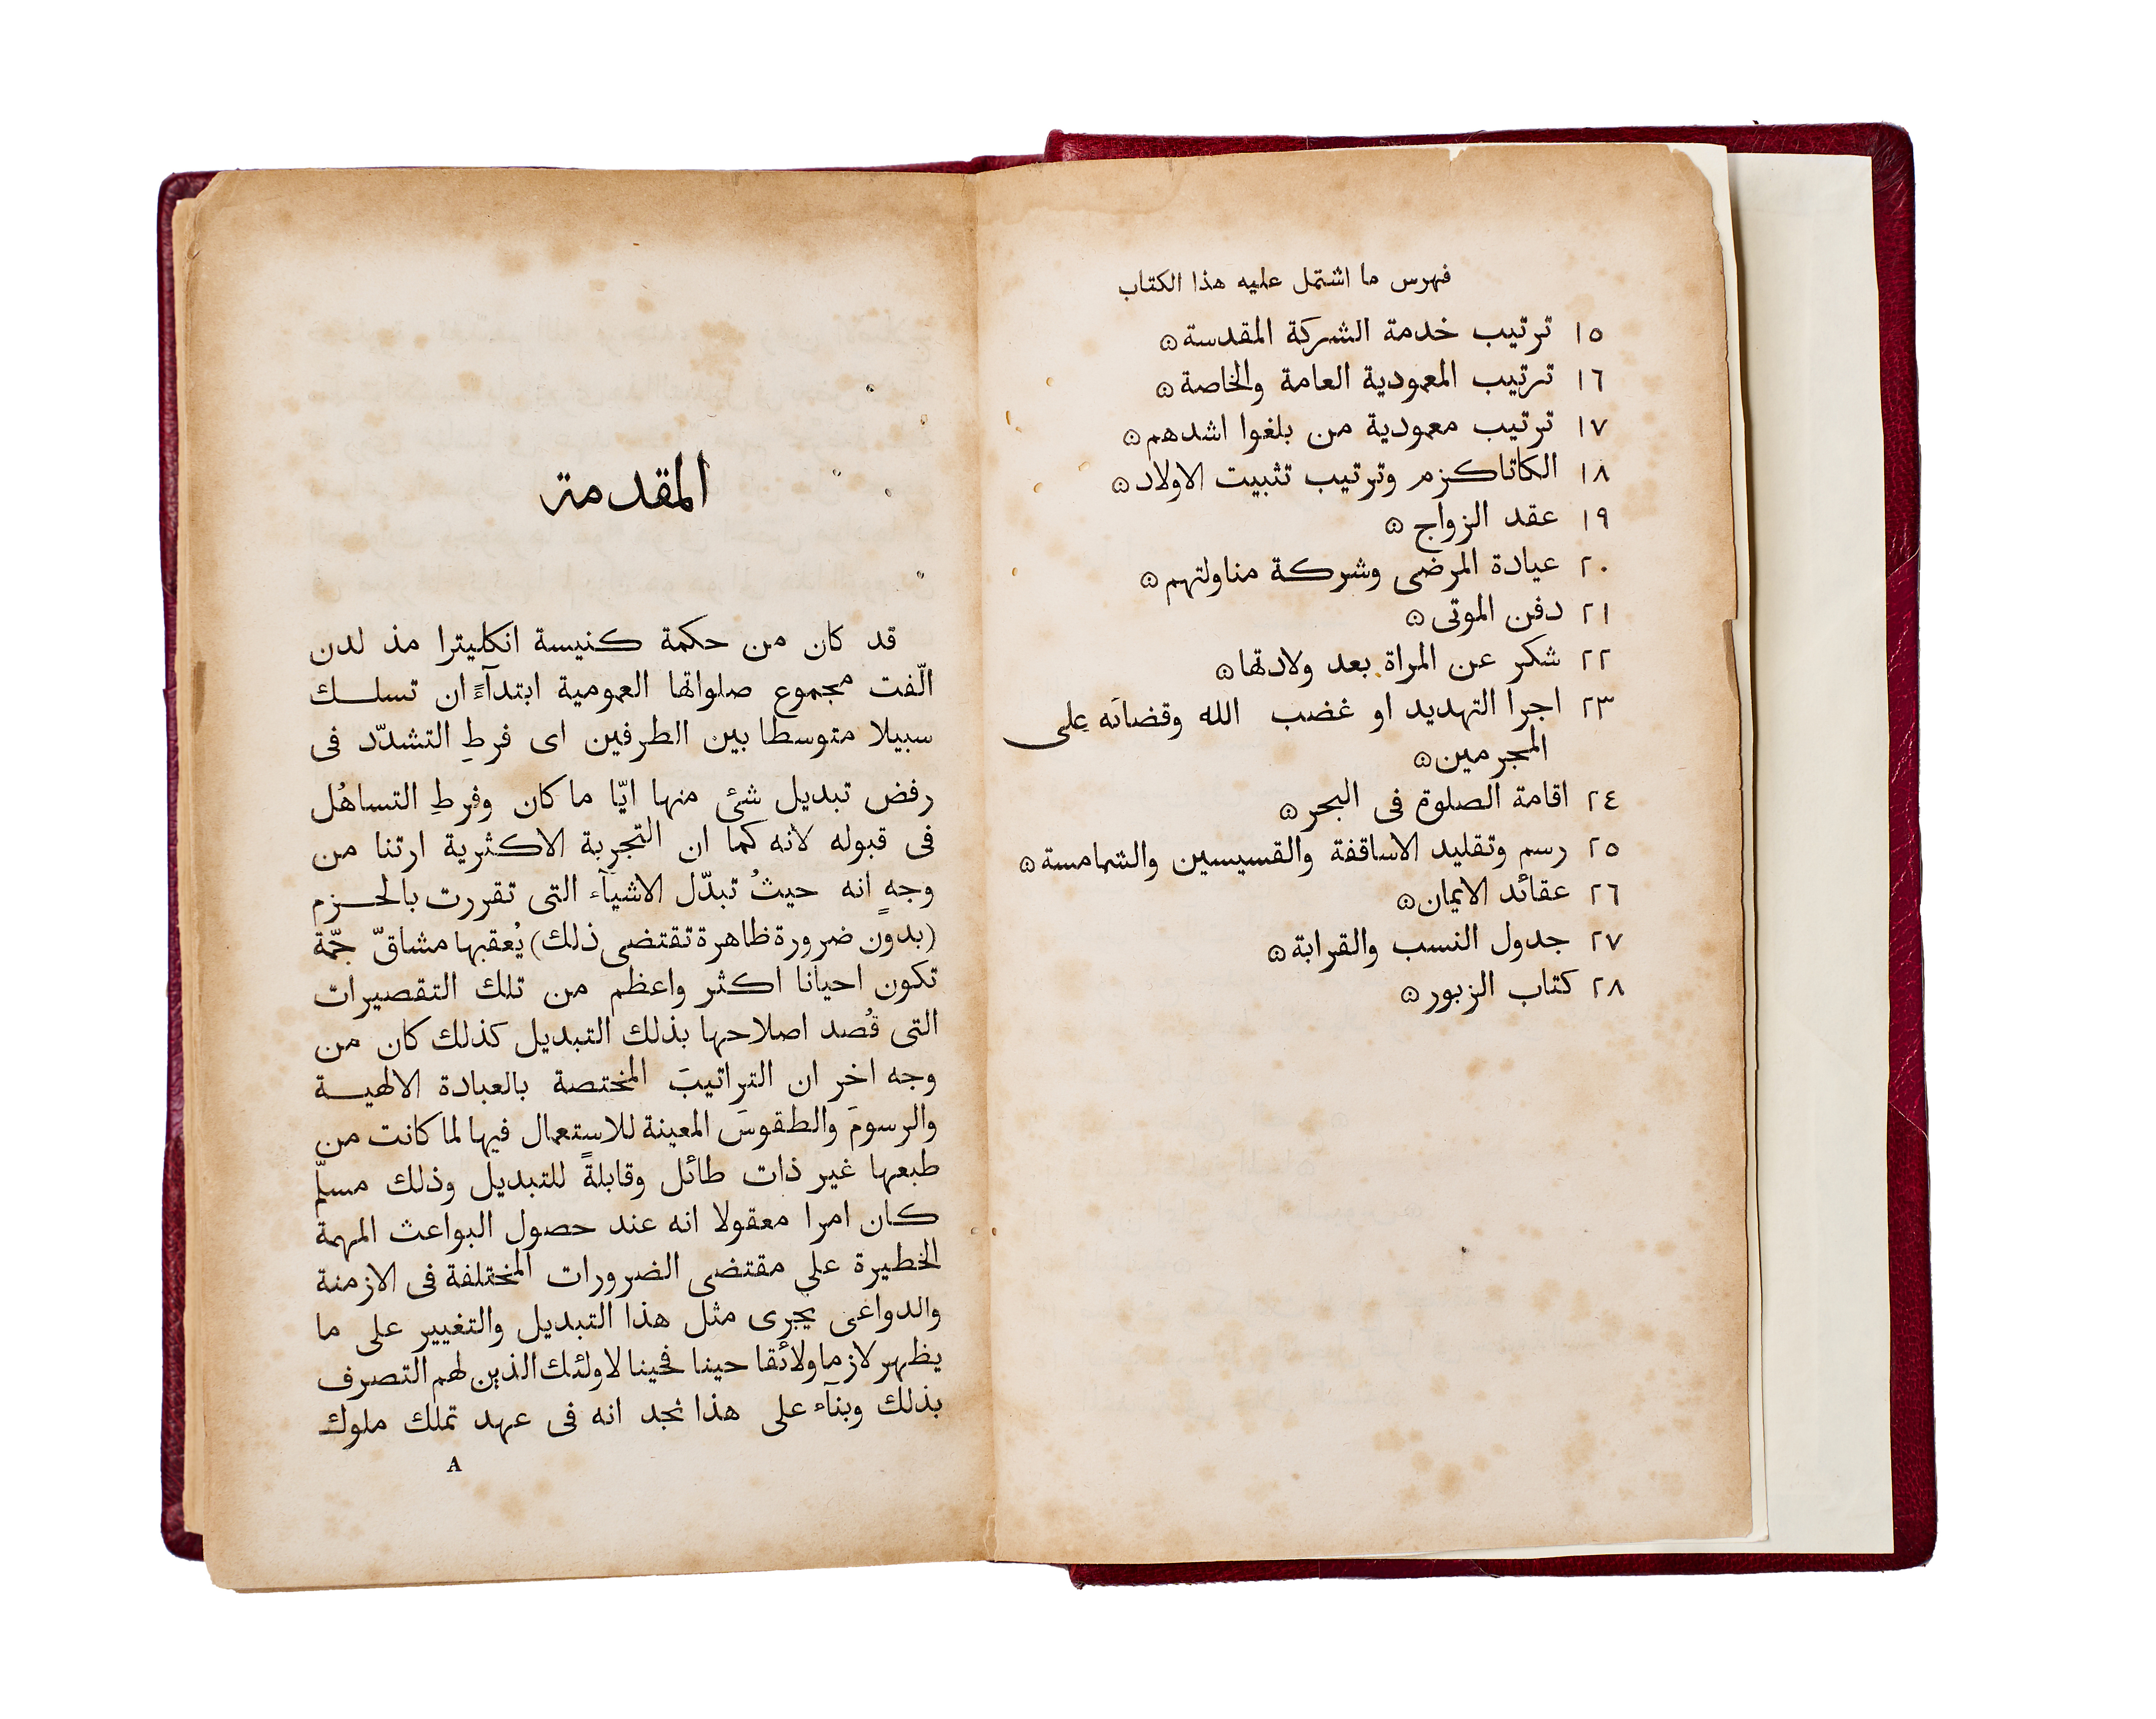 فهرس ما اشتمل عليه هذا الكتاب
١٥ ترتيب خدمة الشركة المقدسة
١٦ ترتيب المعمودية العامة والخاصة
١٧ ترتيب معمودية من بلغوا اشدهم
١٨ الكاتاكزم وترتيب تثبيت الاولاد
١٩ عقد الزواج
٢٠ عيادة المرضى وشركة مناولتهم
٢١ دفن الموتى
٢٢ شكر عن المراة بعد ولادتها
٢٣ اجرا التهديد او غضب الله وقضائه على
المجرمين
٢٤ اقامة الصلوة فى البحر
٢٥ رسم وتقليد الاساقفة والقسيسين والشمامسة
٢٦ عقائد الايمان
٢٧ جدول النسب والقرابة
٢٨ كتاب الزبور
المقدمة
قد كان من حكمة كنيسة انكليترا مذ لدن
الّفت مجموع صلواتها العمومية ابتدآءً ان تسلك
سبيلا متوسطا بين الطرفين اى فرطِ التشدّد فى
رفض تبديل شئ منها ايّا ما كان وفرطِ التساهُل
فى قبوله لانه كما ان التجربة الاكثرية ارتنا من
وجهٍ انه حيثُ تبدّل الاشيآء التى تقررت بالحزم
(بدون ضرورة ظاهرة تقتضى ذلك) يُعقبها مشاقّ جمّة
تكون احيانا اكثر واعظم من تلك التقصيرات
التى قُصد اصلاحها بذلك التبديل كذلك كان من
وجه اخر ان التراتيبَ المختصة بالعبادة الالهية
والرسومَ والطقوسَ المعينة للاستعمال فيها لما كانت من
طبعها غير ذات طائل وقابلةً للتبديل وذلك مسلّم
كان امرا معقولا انه عند حصول البواعث المهمة
الخطيرة على مقتضى الضرورات المختلفة فى الازمنة
والدواعى يجرى مثل هذا التبديل والتغيير على ما
يظهر لازما ولائقا حينا فحينا لاولئك الذين لهم التصرف
بذلك وبنآء على هذا نجد انه فى عهد تملك ملوك
A